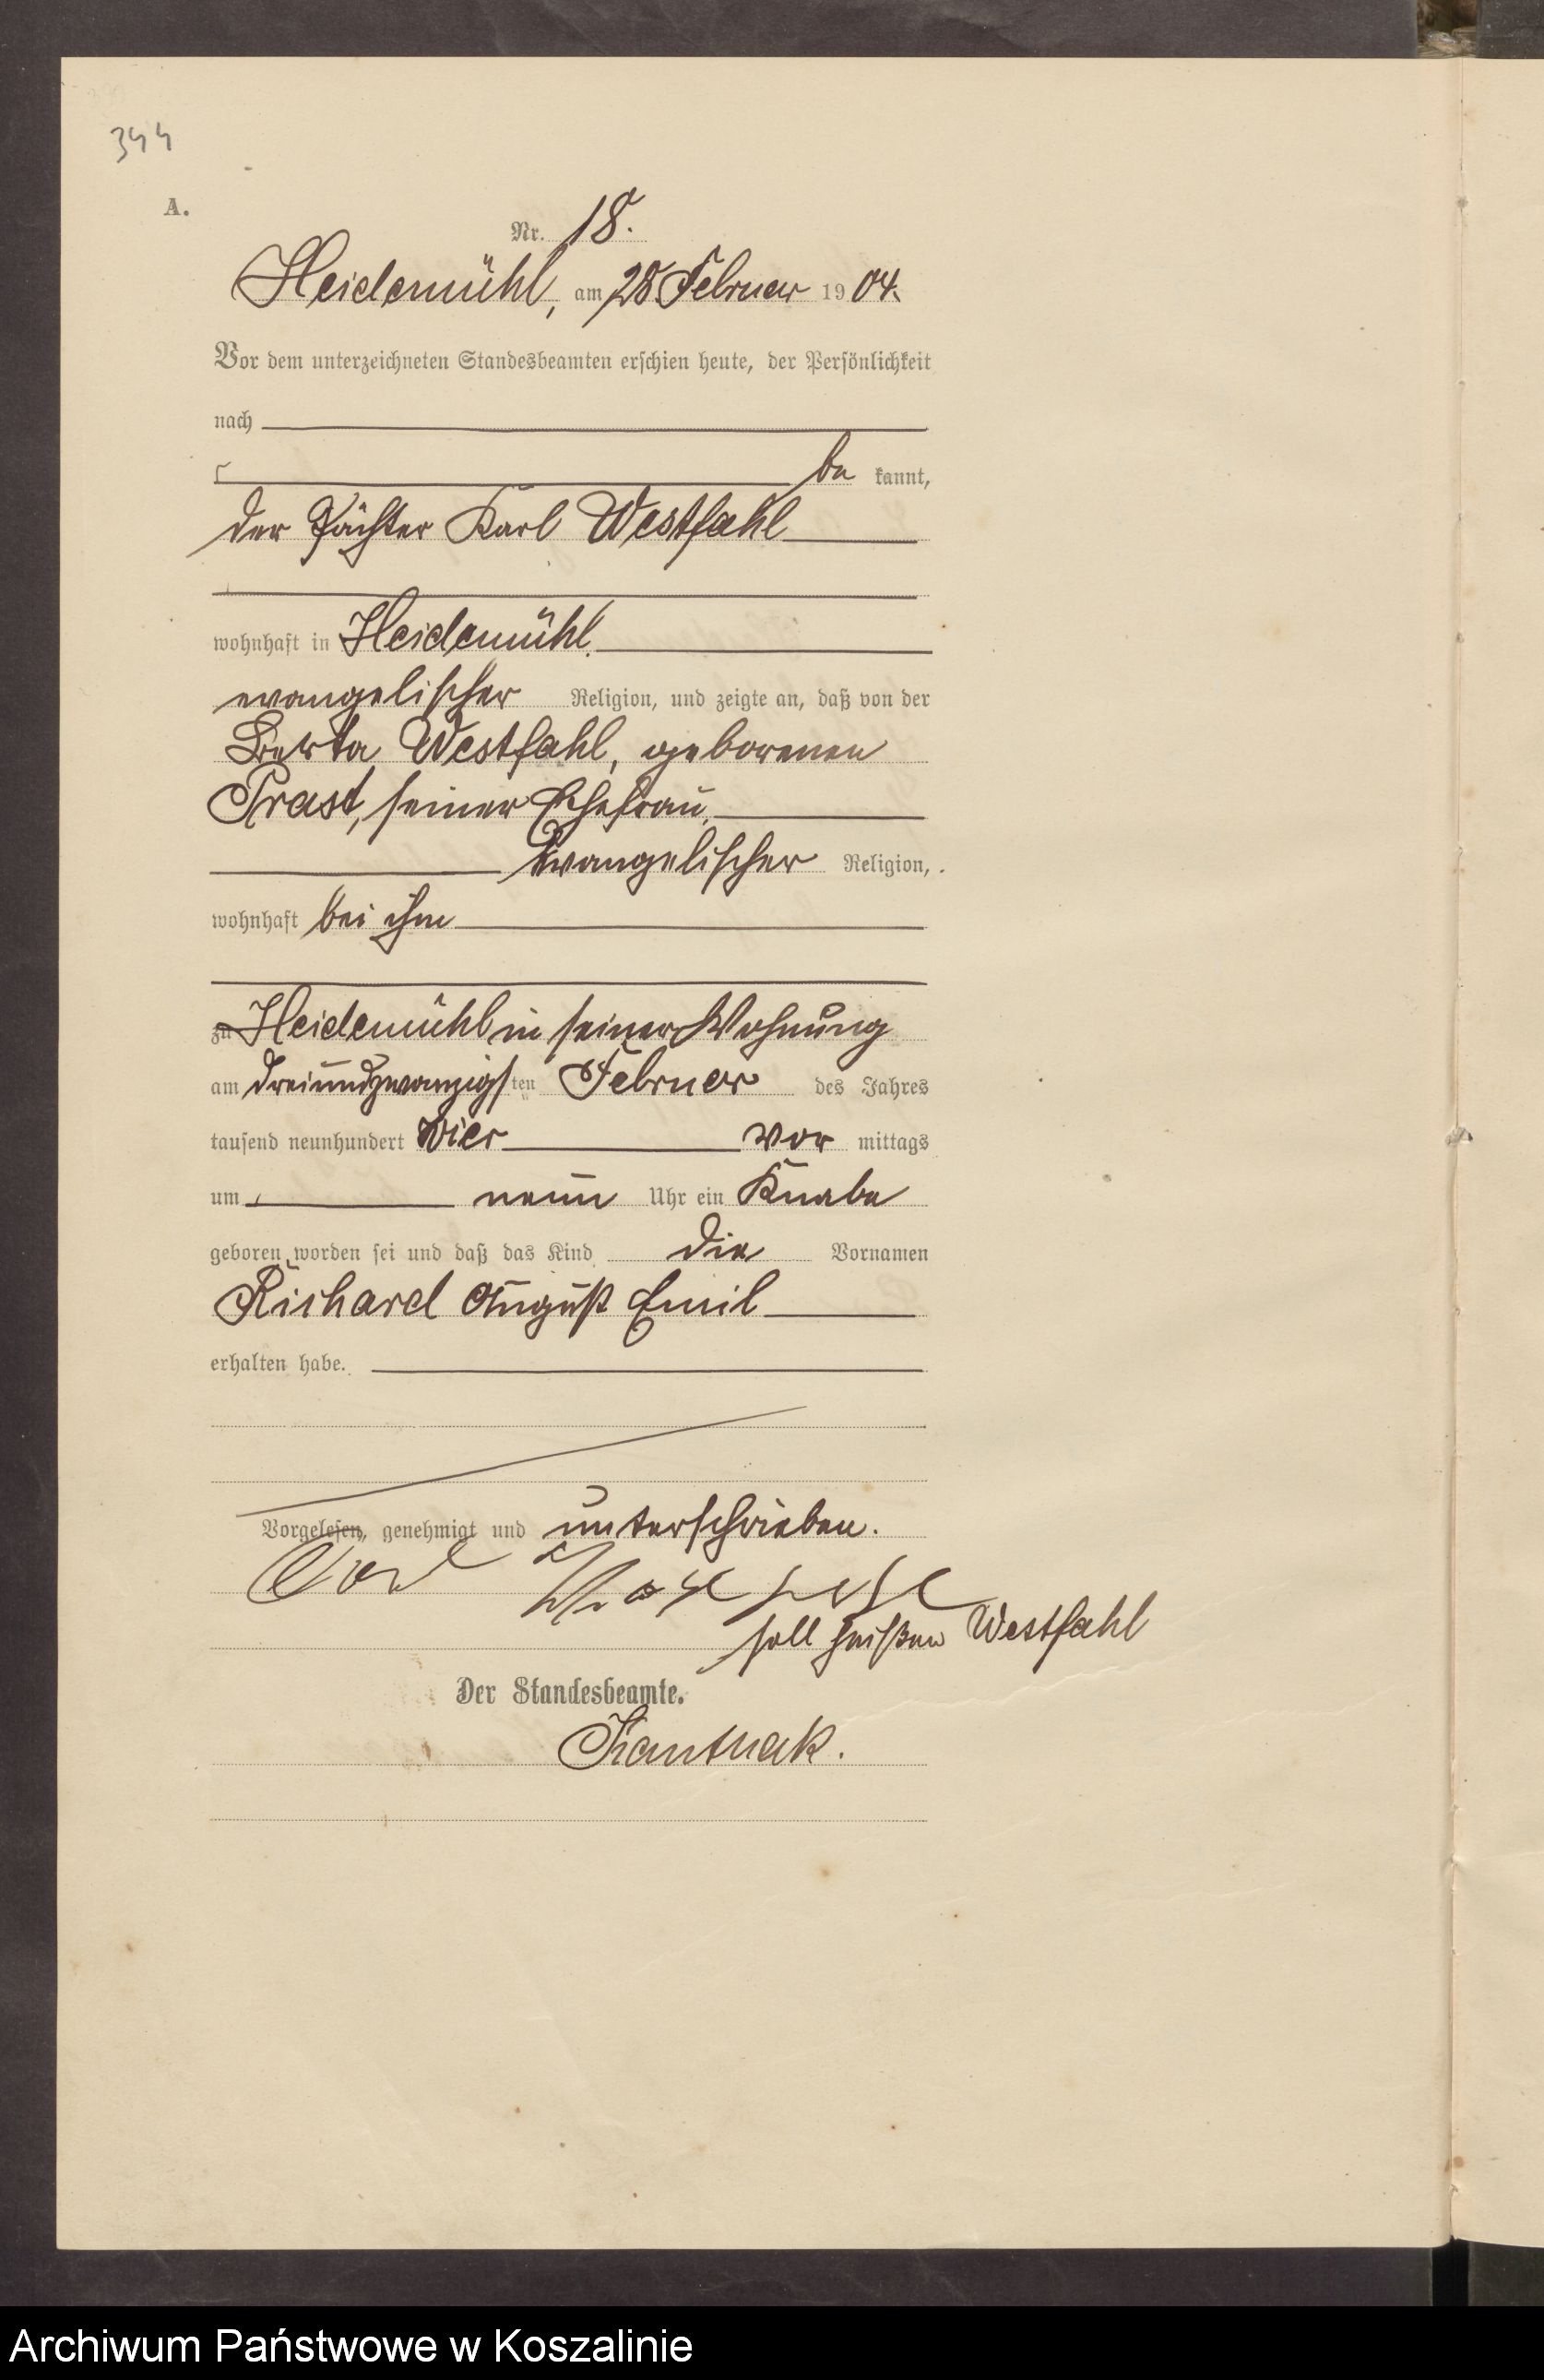 344
A.
Nr. 18.
Heidemühl, am 28 Februar 1904.
Vor dem unterzeichneten Standesbeamten erschien heute, der Persönlichkeit
nach
be kannt,
der Pächter Karl Westfahl
wohnhaft in Heidemühl
evangelischer Religion, und zeigte an, daß von der
Berta Westfahl, geborenen
Prast, seiner Ehefrau,
evangelischer Religion,
wohnhaft bei ihm
zu Heidemühl in seiner Wohnung
am dreiundzwanzigsten Februar des Jahres
tausend neunhundert vier vor mittags
um neun Uhr ein Knabe
geboren worden sei und daß das Kind die Vornamen
Richard August Emil
erhalten habe.
Vorgelesen, genehmigt und unterschrieben.
soll heißen Westfahl
Der Standesbeamte.
Archiwum Państwowe w Koszalinie